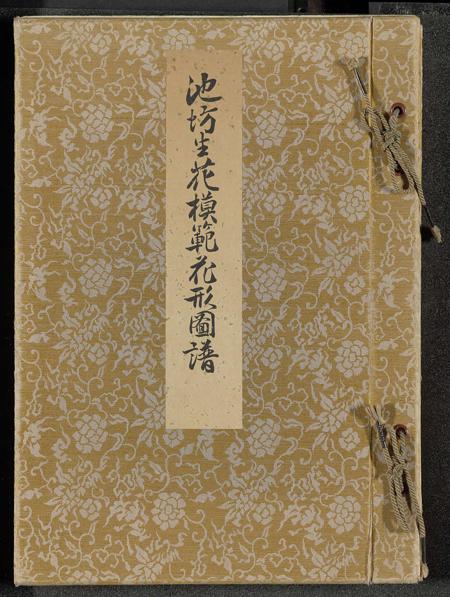 池坊生花模範花形圖譜